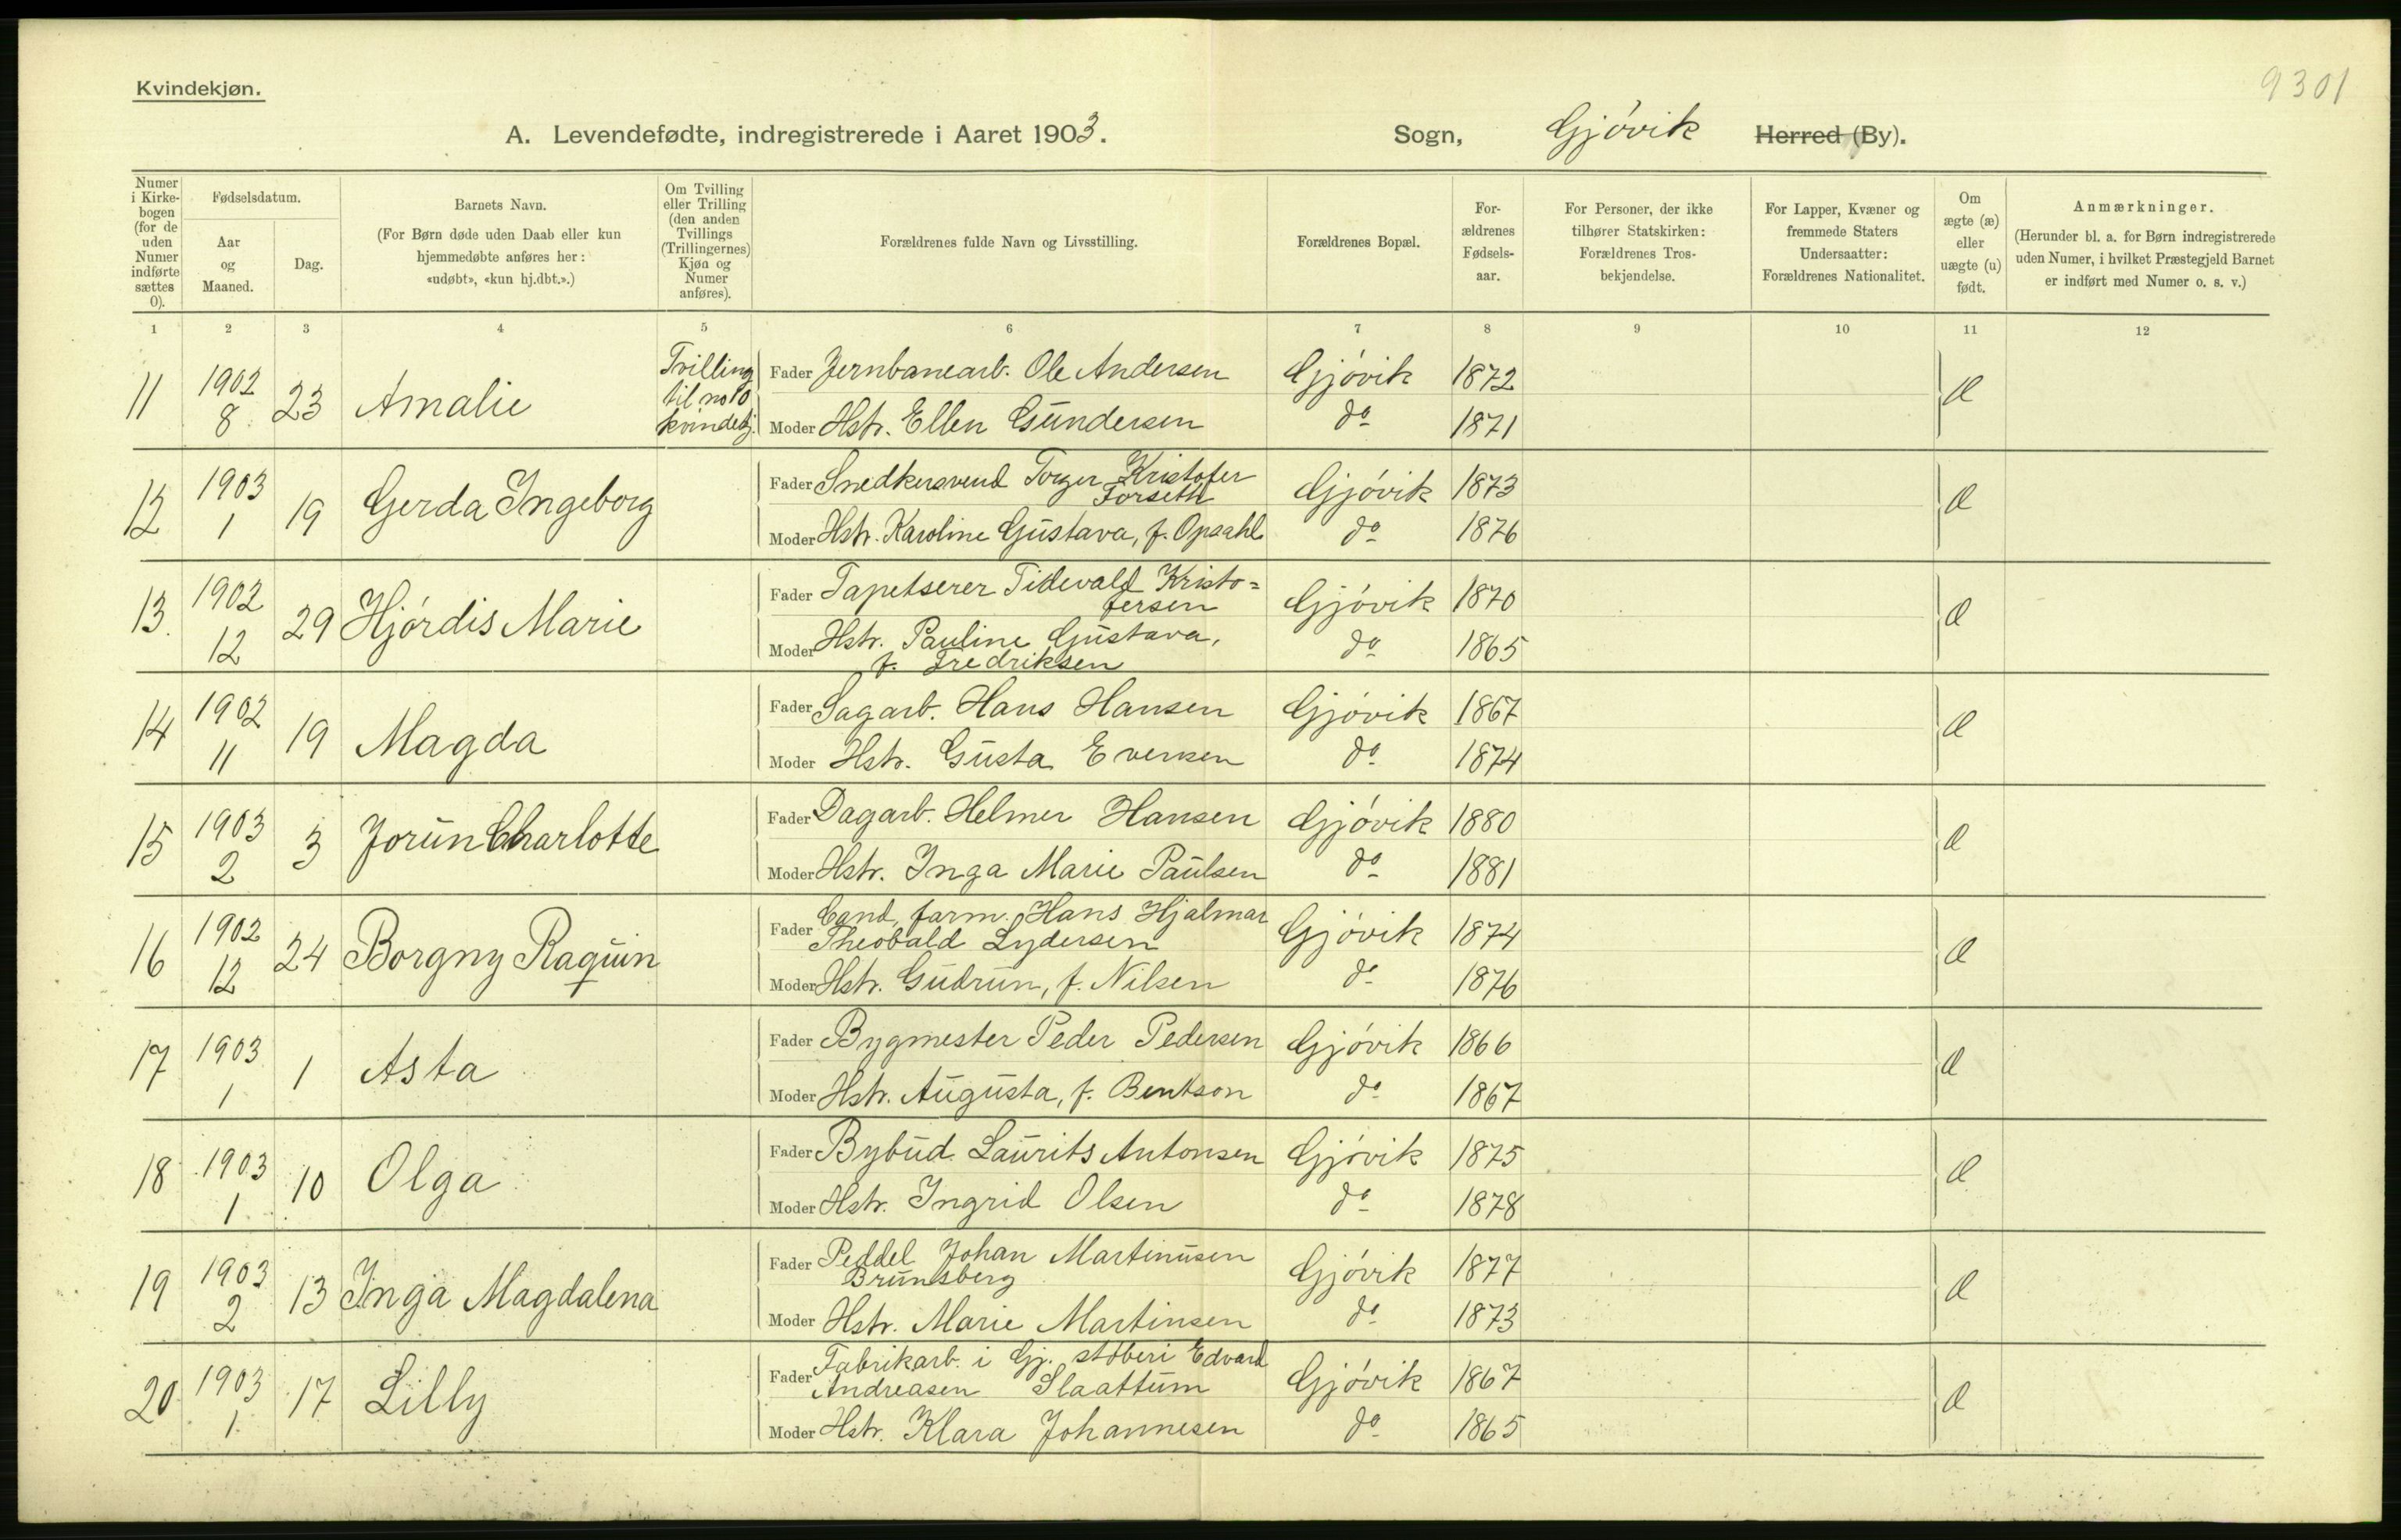 9301
Kvindekjøn.
A. Levendefødte, indregistrerede i Aaret 1903. Sogn, Gjøvik Herred (By).
Numer i Kirkebogen (for de uden Numer indførte sættes 0).
Fødselsdatum.
Aar og Maaned.
Dag.
Barnets Navn.
(For Børn døde uden Daab eller kun hjemmedøbte anføres her: «udøbt», «kun hj.dbt.».)
Om Tvilling eller Trilling (den anden Tvillings (Trillingernes) Kjøn og Numer anføres).
Forældrenes fulde Navn og Livsstilling.
Forældrenes Bopæl.
Forældrenes Fødselsaar.
For Personer, der ikke tilhører Statskirken: Forældrenes Trosbekjendelse.
For Lapper, Kvæner og fremmede Staters Undersaatter: Forældrenes Nationalitet.
Om ægte (æ) eller uægte (u) født.
Anmærkninger.
(Herunder bl. a. for Børn indregistrerede uden Numer, i hvilket Præstegjeld Barnet er indført med Numer o. s. v.)
1 2 3 4 5 6 7 8 9 10 11 12
11 1902 8 23 Amalie Tvilling til no 10 kvindekj.
Fader Jernbanearb. Ole Andersen Gjøvik 1872 æ
Moder Hstr. Ellen Gundersen do 1871
12 1903 1 19 Gerda Ingeborg
Fader Snedkersvend Torger Kristofer Forseth Gjøvik 1873 æ
Moder Hstr. Karoline Gustava, f. Opsahl do 1876
13. 1902 12 29 Hjórdis Marie
Fader Tapetserer Tidevald Kristo=fersen Gjøvik 1870 æ
Moder Hstr. Pauline Gustava, f. Fredriksen do 1865
14 1902 11 19 Magda
Fader Sagarb. Hans Hansen Gjøvik 1867 æ
Moder Hstr. Gusta Evensen do 1874
15 1903 2 3 Jorun Charlotte
Fader Dagarb. Helmer Hansen Gjøvik 1880 æ
Moder Hstr. Inga Marie Paulsen do 1881
16 1902 12 24 Borgny Raquin
Fader Cand. farm. Hans Hjalmar Theobald Lydersen Gjøvik 1874 æ
Moder Hstr. Gudrun, f. Nilsen do 1876
17 1903 1 1 Asta
Fader Bygmester Peder Pedersen Gjøvik 1866 æ
Moder Hstr. Augusta, f. Bentson do 1867
18 1903 1 10 Olga
Fader Bybud Laurits Antonsen Gjøvik 1875 æ
Moder Hstr. Ingrid Olsen do 1878
19 1903 2 13 Inga Magdalena
Fader Peddel Johan Martinusen Brunsberg Gjøvik 1877 æ
Moder Hstr. Marie Martinsen do 1873
20 1903 1 17 Lilly
Fader Fabrikarb. i Gj. støberi Edvard Andreasen Slaattum Gjøvik 1867 æ
Moder Hstr. Klara Johannesen do 1865